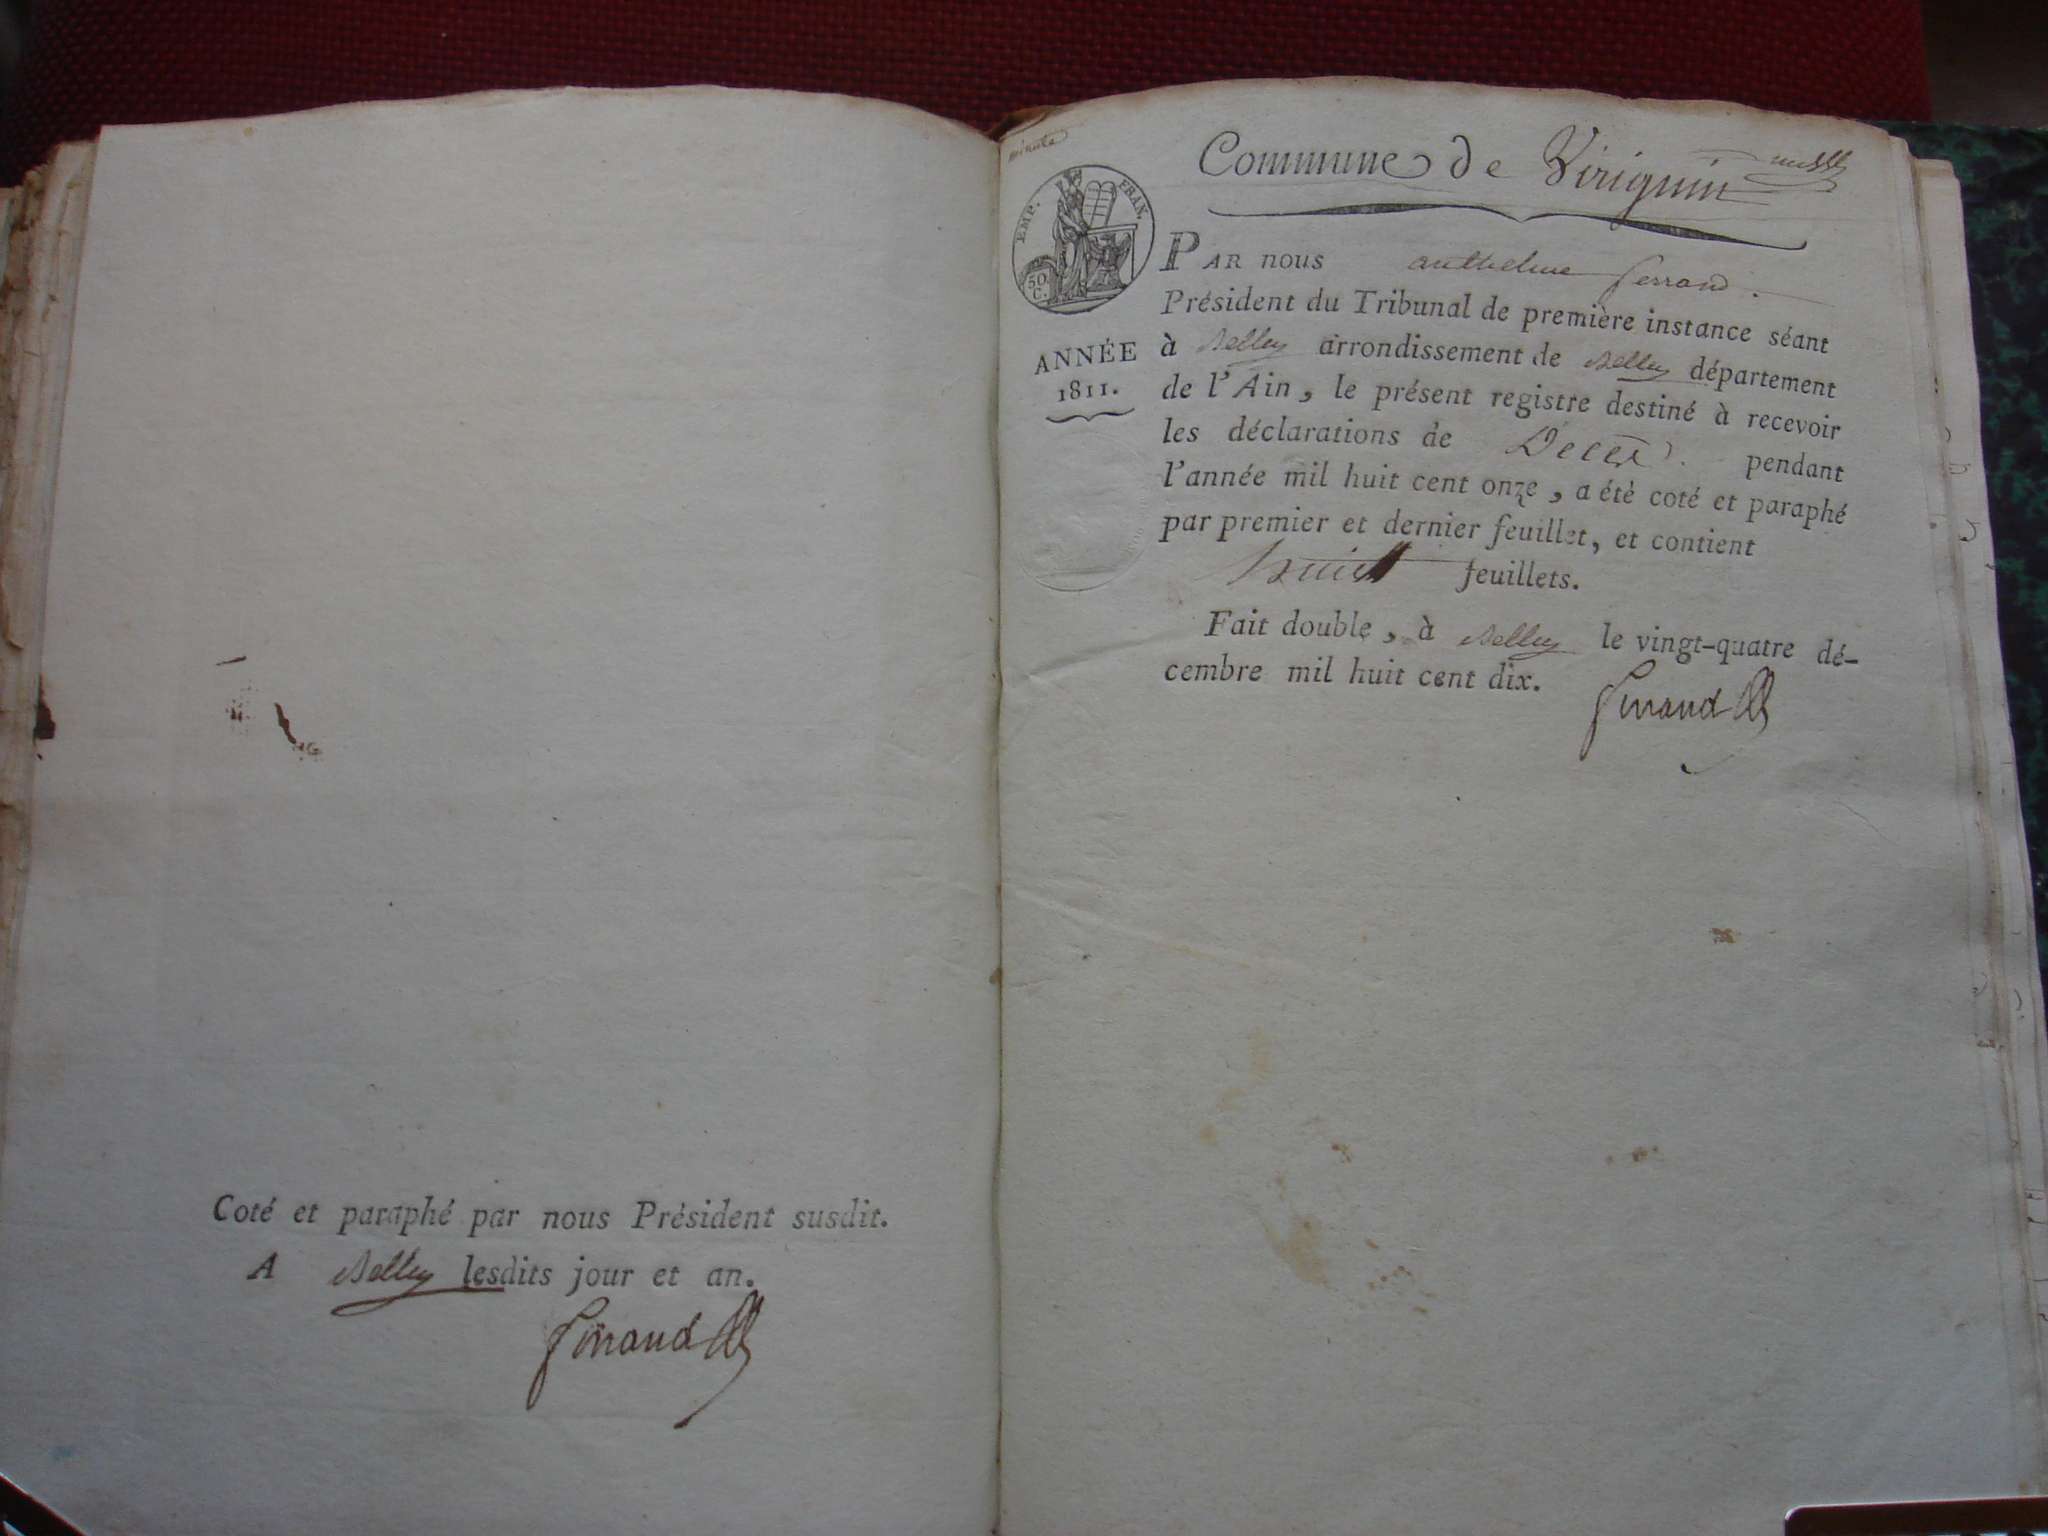 Coté et paraphé par nous Président susdit.
A Belley lesdits jour et an.
Ferrand
minute
Commune de Virignin
EMP. FRAN.
50 C.
ANNÉE
1811.
PAR nous anthelme ferrand.
Président du Tribunal de première instance séant
à Belley arrondissement de Belley département
de l'Ain, le présent registre destiné à recevoir
les déclarations de Décès pendant
l'année mil huit cent onze, a été coté et paraphé
par premier et dernier feuillet, et contient
huit feuillets.
Fait double, à Belley le vingt-quatre dé-
cembre mil huit cent dix.
Ferrand